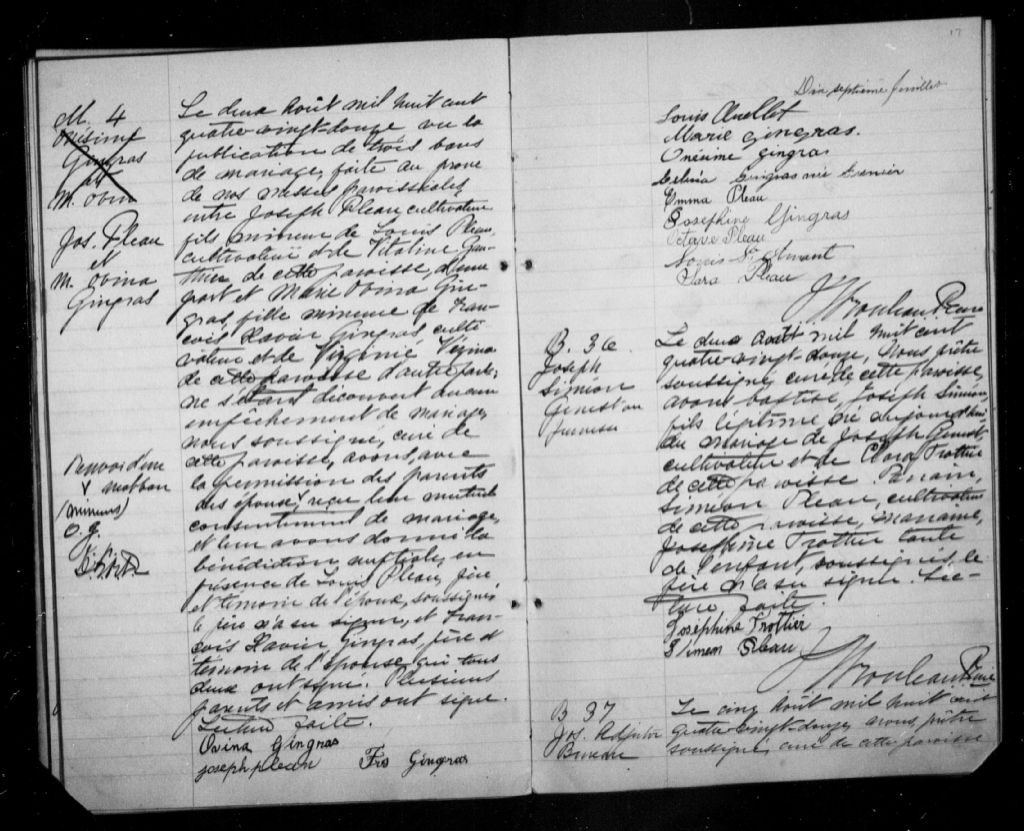 M. 4
Onésime
Gingras
et
M. Ovina
Jos. Pleau
et
M. Ovina
Gingras
Le deux Août mil huit cent
quatre-vingt-douze vu la
publication de trois bans
de mariage, faite au prone
de nos messes paroissiales,
entre Joseph Pleau, cultivateur
fils mineur de Louis Pleau,
cultivateur et de Vitaline Gau-
thier de cette paroisse, d'une
part et Marie Ovina Gin-
gras, fille mineure de Fran-
cois Xavier Gingras, culti-
vateur et de Virginie Vézina
de cette paroisse d'autre part;
ne s'étant découvert aucun
empêchement de mariage,
nous soussigné, curé de
cette paroisse, avons, avec
la permission des parents
des époux, reçu leur mutuel
consentement de mariage,
et leur avons donné la
bénédiction nuptiale, en
présence de Louis Pleau, père
et témoin de l'époux, soussignés
le père n'a su signer, et Fran-
cois Xavier Gingras, père et
témoin de l'épouse, qui tous
deux ont signé. Plusieurs
parents et amis ont signé.
Lecture faite.
Ovina Gingras
joseph pleau Frs Gingras
Renvoi d'un
mot bon
(mineurs)
O. G.
17
Dix septième feuillet
Louis Ouellet
Marie gingras.
Onésime gingras
Gingras née Grenier
Emma Pleau
Josephine Gingras
Octave Pleau
Louis St Amant
Clara Pleau
J Rouleau Ptre Curé
B. 36
Joseph
Siméon
Genest
Le deux Août mil huit cent
quatre-vingt-douze, Nous prêtre
soussigné, curé de cette paroisse,
avons baptisé, Joseph Siméon,
fils légitime né aujourd'hui
du mariage de Joseph Genest
cultivateur et de Clara Trottier
de cette paroisse Parrain,
Siméon Pleau, cultivateur
de cette paroisse, marraine,
Josephine Trottier tante
de l'enfant, soussignés, le
père n'a su signer. Lec-
ture faite.
Josephine Trottier
Simeon Pleau
J Rouleau Ptre Curé
B 37
Jos.
Le cinq Août mil huit cent
quatre-vingt-douze, nous, prêtre
soussigné, curé de cette paroisse